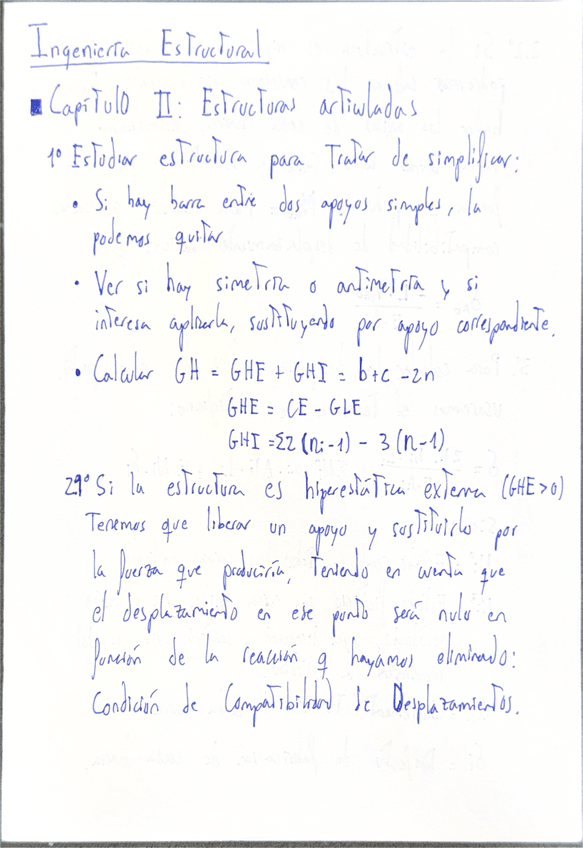 Ingeniería Estructural
■ Capítulo II: Estructuras articuladas
1º Estudiar estructura para Tratar de simplificar:
• Si hay barra entre dos apoyos simples, la
podemos quitar
• Ver si hay simetría o antimetría y si
interesa aplicarla, sustituyendo por apoyo correspondiente.
• Calcular GH = GHE + GHI = b+c-2n
GHE = CE - GLE
GHI = Σ2(ni-1) - 3(n-1)
2.1º Si la estructura es hiperestática externa (GHE>0)
Tenemos que liberar un apoyo y sustituirlo por
la fuerza que produciría, teniendo en cuenta que
el desplazamiento en ese punto será nulo en
función de la reacción q hayamos eliminado:
Condición de Compatibilidad de Desplazamientos.